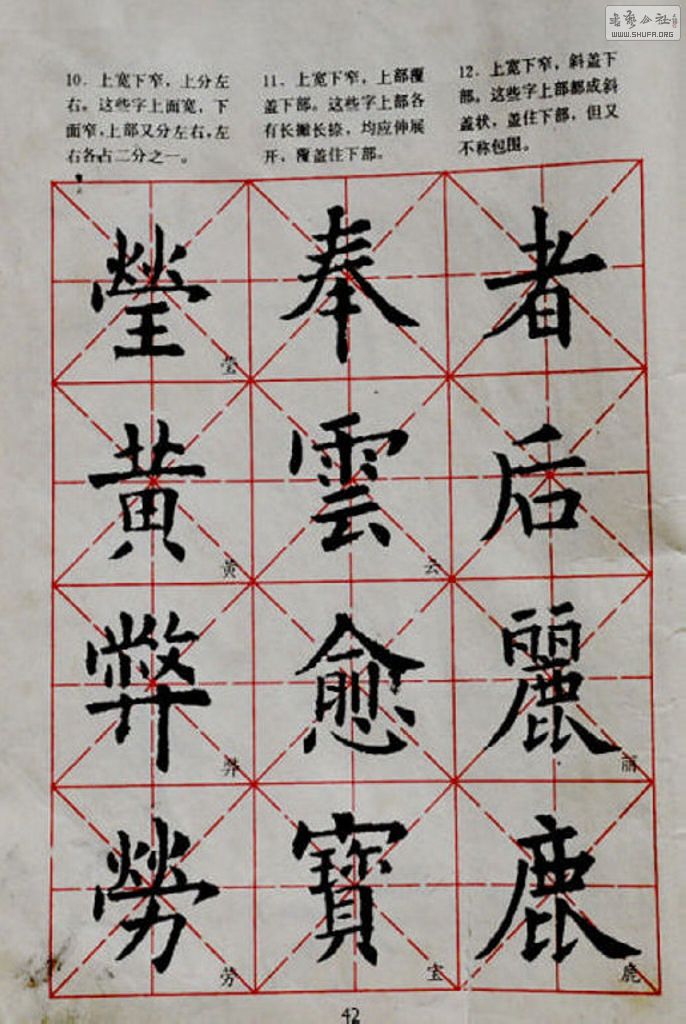 書藝公社
WWW.SHUFA.ORG
10．上宽下窄，上分左
右。这些字上面宽，下
面窄，上部又分左右，左
右各占二分之一。
11．上宽下窄，上部覆
盖下部。这些字上部各
有长撇长捺，均应伸展
开，覆盖住下部。
12．上宽下窄，斜盖下
部。这些字上部都成斜
盖状，盖住下部，但又
不称包围。
瑩
莹
黄
黄
弊
弊
勞
劳
奉
雲
云
愈
寶
宝
者
后
麗
丽
鹿
鹿
42